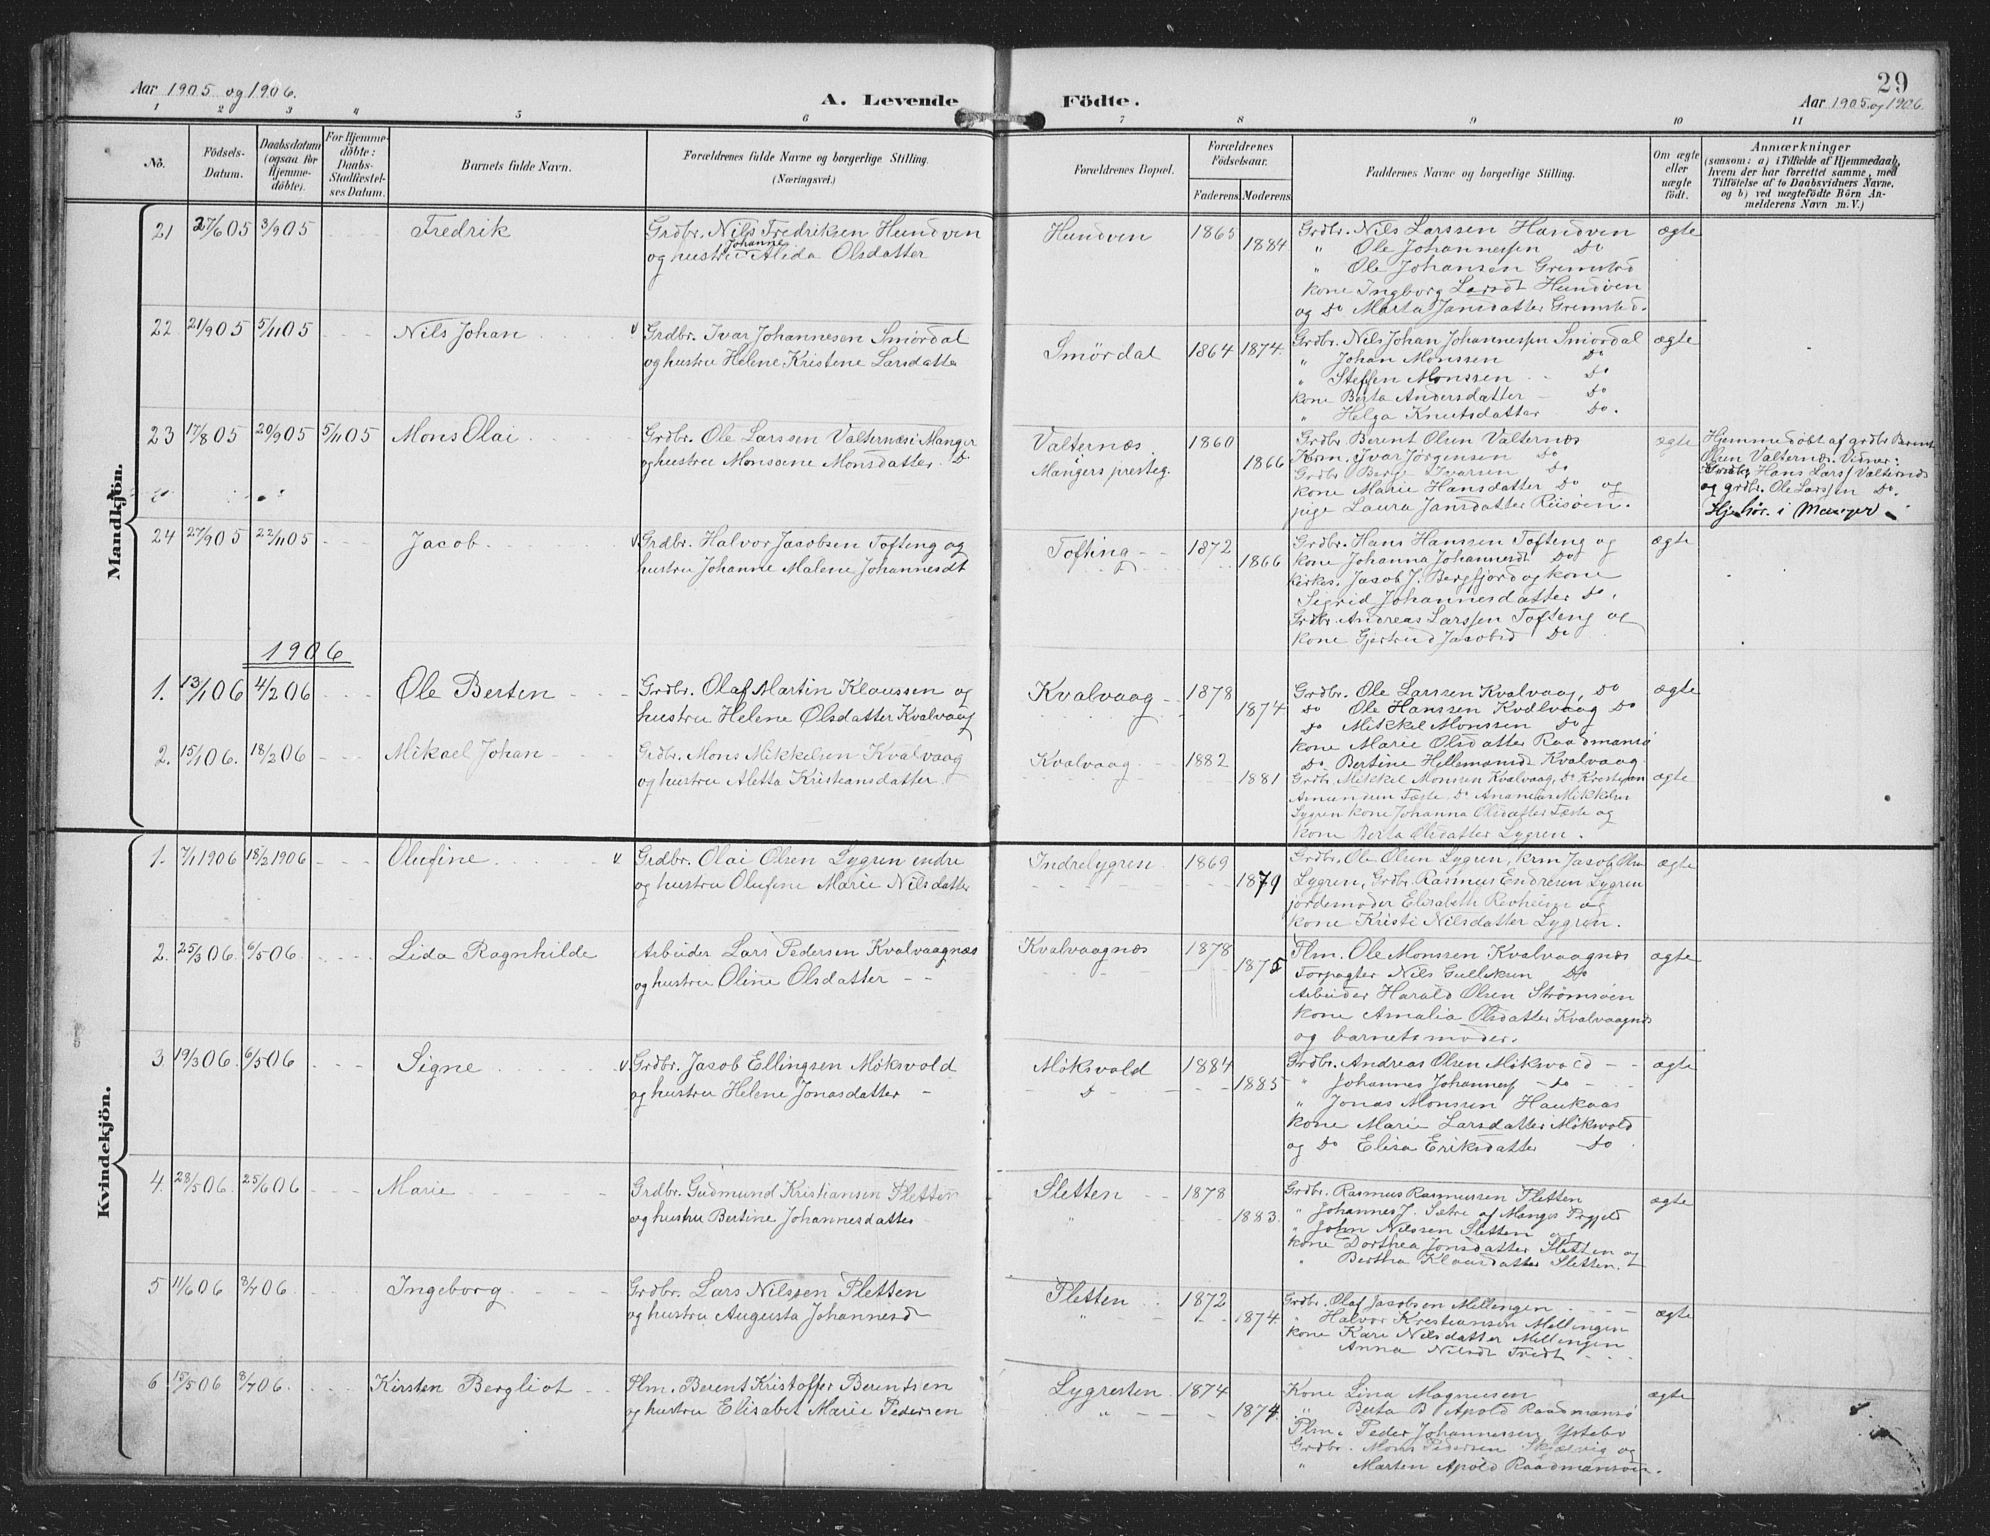 29
Aar 1905 og 1906.
A. Levende Födte.
Aar 1905 og 1906
1 2 3 4 5 6 7 8 9 10 11
No.
Födsels-Datum.
Daabsdatum (ogsaa for Hjemme-döbte).
For Hjemme-döbte: Daabs-Stadfæstel-ses Datum.
Barnets fulde Navn.
Forældrenes fulde Navne og borgerlige Stilling.
(Næringsvei.)
Forældrenes Bopæl.
Forældrenes Födselsaar.
Faderens Moderens
Faddernes Navne og borgerlige Stilling.
Om ægte eller uægte födt.
Anmærkninger
(saasom: a) i Tilfælde af Hjemmedaab,
hvem der har forrettet samme, med
Tilföielse af to Daabsvidners Navne,
og b) ved uægtefödte Börn An-
melderens Navn m. V.)
Mandkjön.
21 27/6 05 3/9 05 Fredrik
Grdbr. Nils Fredriksen Hundven
Johanne
og hustru Alida Olsdatter
Hundven 1865 1884
Grdbr. Nils Larssen Hundven
" Ole Johannessen Do
" Ole Johansen Gremstad
kone Ingborg Larsdt Hundven
og Do Marta Jansdatter Gremstad.
ægte
22 21/9 05 5/11 05 Nils Johan
Grdbr. Ivar Johannesen Smørdal
og hustru Helene Kristene Larsdatte
Smördal 1864 1874
Grdbr. Nils Johan Johannessen Smørdal
" Johan Monssen Do
" Steffen Monssen Do
kone Berta Andersdatter Do
" Helga Knutsdatter Do.
ægte
23 17/8 05 20/9 05 5/11 05 Mons Olai
Grdbr. Ole Larssen Valternæs i Manger
og hustru Monsine Monsdatter. Do
Valternæs
Mangers presteg.
1860 1866
Grdbr Berent Olsen Valternæs
Krm. Ivar Jörgensen Do
Grdbr Berge Ivarsen Do
kone Marie Hansdatter Do og
pige Laura Jansdatter Riisöen.
ægte
Hjemmedöbt af grdbr Berent
Olsen Valternæs. Vidner:
Grdbr Hans Larss Valternæs
og grdbr. Ole Larssen Do.
Hjehör. i Manger
24 27/9 05 22/11 05 Jacob
Grdbr. Halvor Jacobsen Tofteng og
hustru Johanne Malene Johannesdt
Tofting 1872 1866
Grdbr. Hans Hanssen Tofteng og
kone Johanna Johannesdt Do
Kirkes. Jacob J. Bergfjord og kone
Sigrid Johannesdatter Do.
Grdbr. Andreas Larssen Tofteng og
kone Gjertrud Jacobsd Do
ægte
1906
1. 13/1 06 4/2 06 Ole Berten
Grdbr. Olaf Martin Klaussen og
hustru Helene Olsdatter Kvalvaag
Kvalvaag 1878 1874
Grdbr. Ole Larssen Kvalvaag, Do
Do Ole Hanssen Kvalvaag Do
Do Mikkel Monssen Do
kone Marie Olsdatter Raadmansø
Do. Bertine Hellemansd Kvalvaag
ægte
2. 15/1 06. 18/2 06 Mikael Johan
Grdbr. Mons Mikkelsen Kvalvaag
og hustru Aletta Kristiansdatter.
Kvalvaag 1882 1881
Grdbr. Mikkel Monsen Kvalvaag, Do Kristian
Amundsen Fæste, Do Ananias Mikkelsen
Lygren kone Johanna Olsdatter Fæste og
kone Berta Olsdatter Lygren.
ægte
Kvindekjön.
1. 7/1 1906 18/2 1906 Olufine
Grdbr. Olai Olsen Lygren indre
og hustru Olufine Marie Nilsdatter
Indrelygren 1869 1879
Grdbr. Ole Olsen Lygren, krm Jacob Olsen
Lygren, Grdbr. Rasmus Endresen Lygren
jordemoder Elisabeth Revheim og
kone Kristi Nilsdatter Lygren.
ægte
2. 25/3 06. 6/5 06 Lida Ragnhilde
Arbeider Lars Pedersen Kvalvaagnæs
og hustru Oline Olsdatter
Kvalvaagnæs 1878 1875
Plm. Ole Monssen Kvalvaagnæs
Forpagter Nils Gulleksen Do
Arbeider Harald Olsen Strømsöen
kone Amalia Olsdatter Kvalvaagnæs
og barnets moder.
ægte
3 19/3 06 6/5 06 Signe
Grdbr. Jacob Ellingsen Möksvold
og hustru Helene Jonasdatter
Møksvold Do 1884 1885
Grdbr. Andreas Olsen Møksvold
" Johannes Johanness Do
" Jonas Monssen Haukaas
kone Marie Larsdatter Møksvold
og Do Elisa Eriksdatter Do
ægte
4. 28/5 06. 25/6 06 Marie
Grdbr. Gudmund Kristiansen Sletten
og hustru Bertine Johannesdatter
Sletten 1878 1883
Grdbr. Rasmus Rasmussen Sletten
" Johannes J. Sætre af Manger Prgjeld
" John Nilssen Sletten og
kone Dorthea Jonsdatter Sletten og
" Bertha Klausdatter Sletten.
ægte
5 11/6 06 8/7 06. Ingeborg
Grdbr. Lars Nilssen Sletten
og hustru Augusta Johannesd
Sletten 1872 1874
Grdbr. Olaf Jacobsen Mellingen
" Halvor Kristiansen Mellingen
kone Kari Nilsdatter Mellingen
Anna Nilsdt Tvedt
ægte
6 15/5 06 8/7 06. Kirsten Bergliot
Plm. Berent Kristoffer Berentsen
og hustru Elisabet Marie Pedersen
Lygresten 1874 1874
Kone Lina Magnusen
" Berta B. Apold Raadmansø
Plm. Peder Johannessen Ystebø
Grdbr. Mons Pedersen Skjelvig og
" Marten Apold Raadmansøen.
ægte